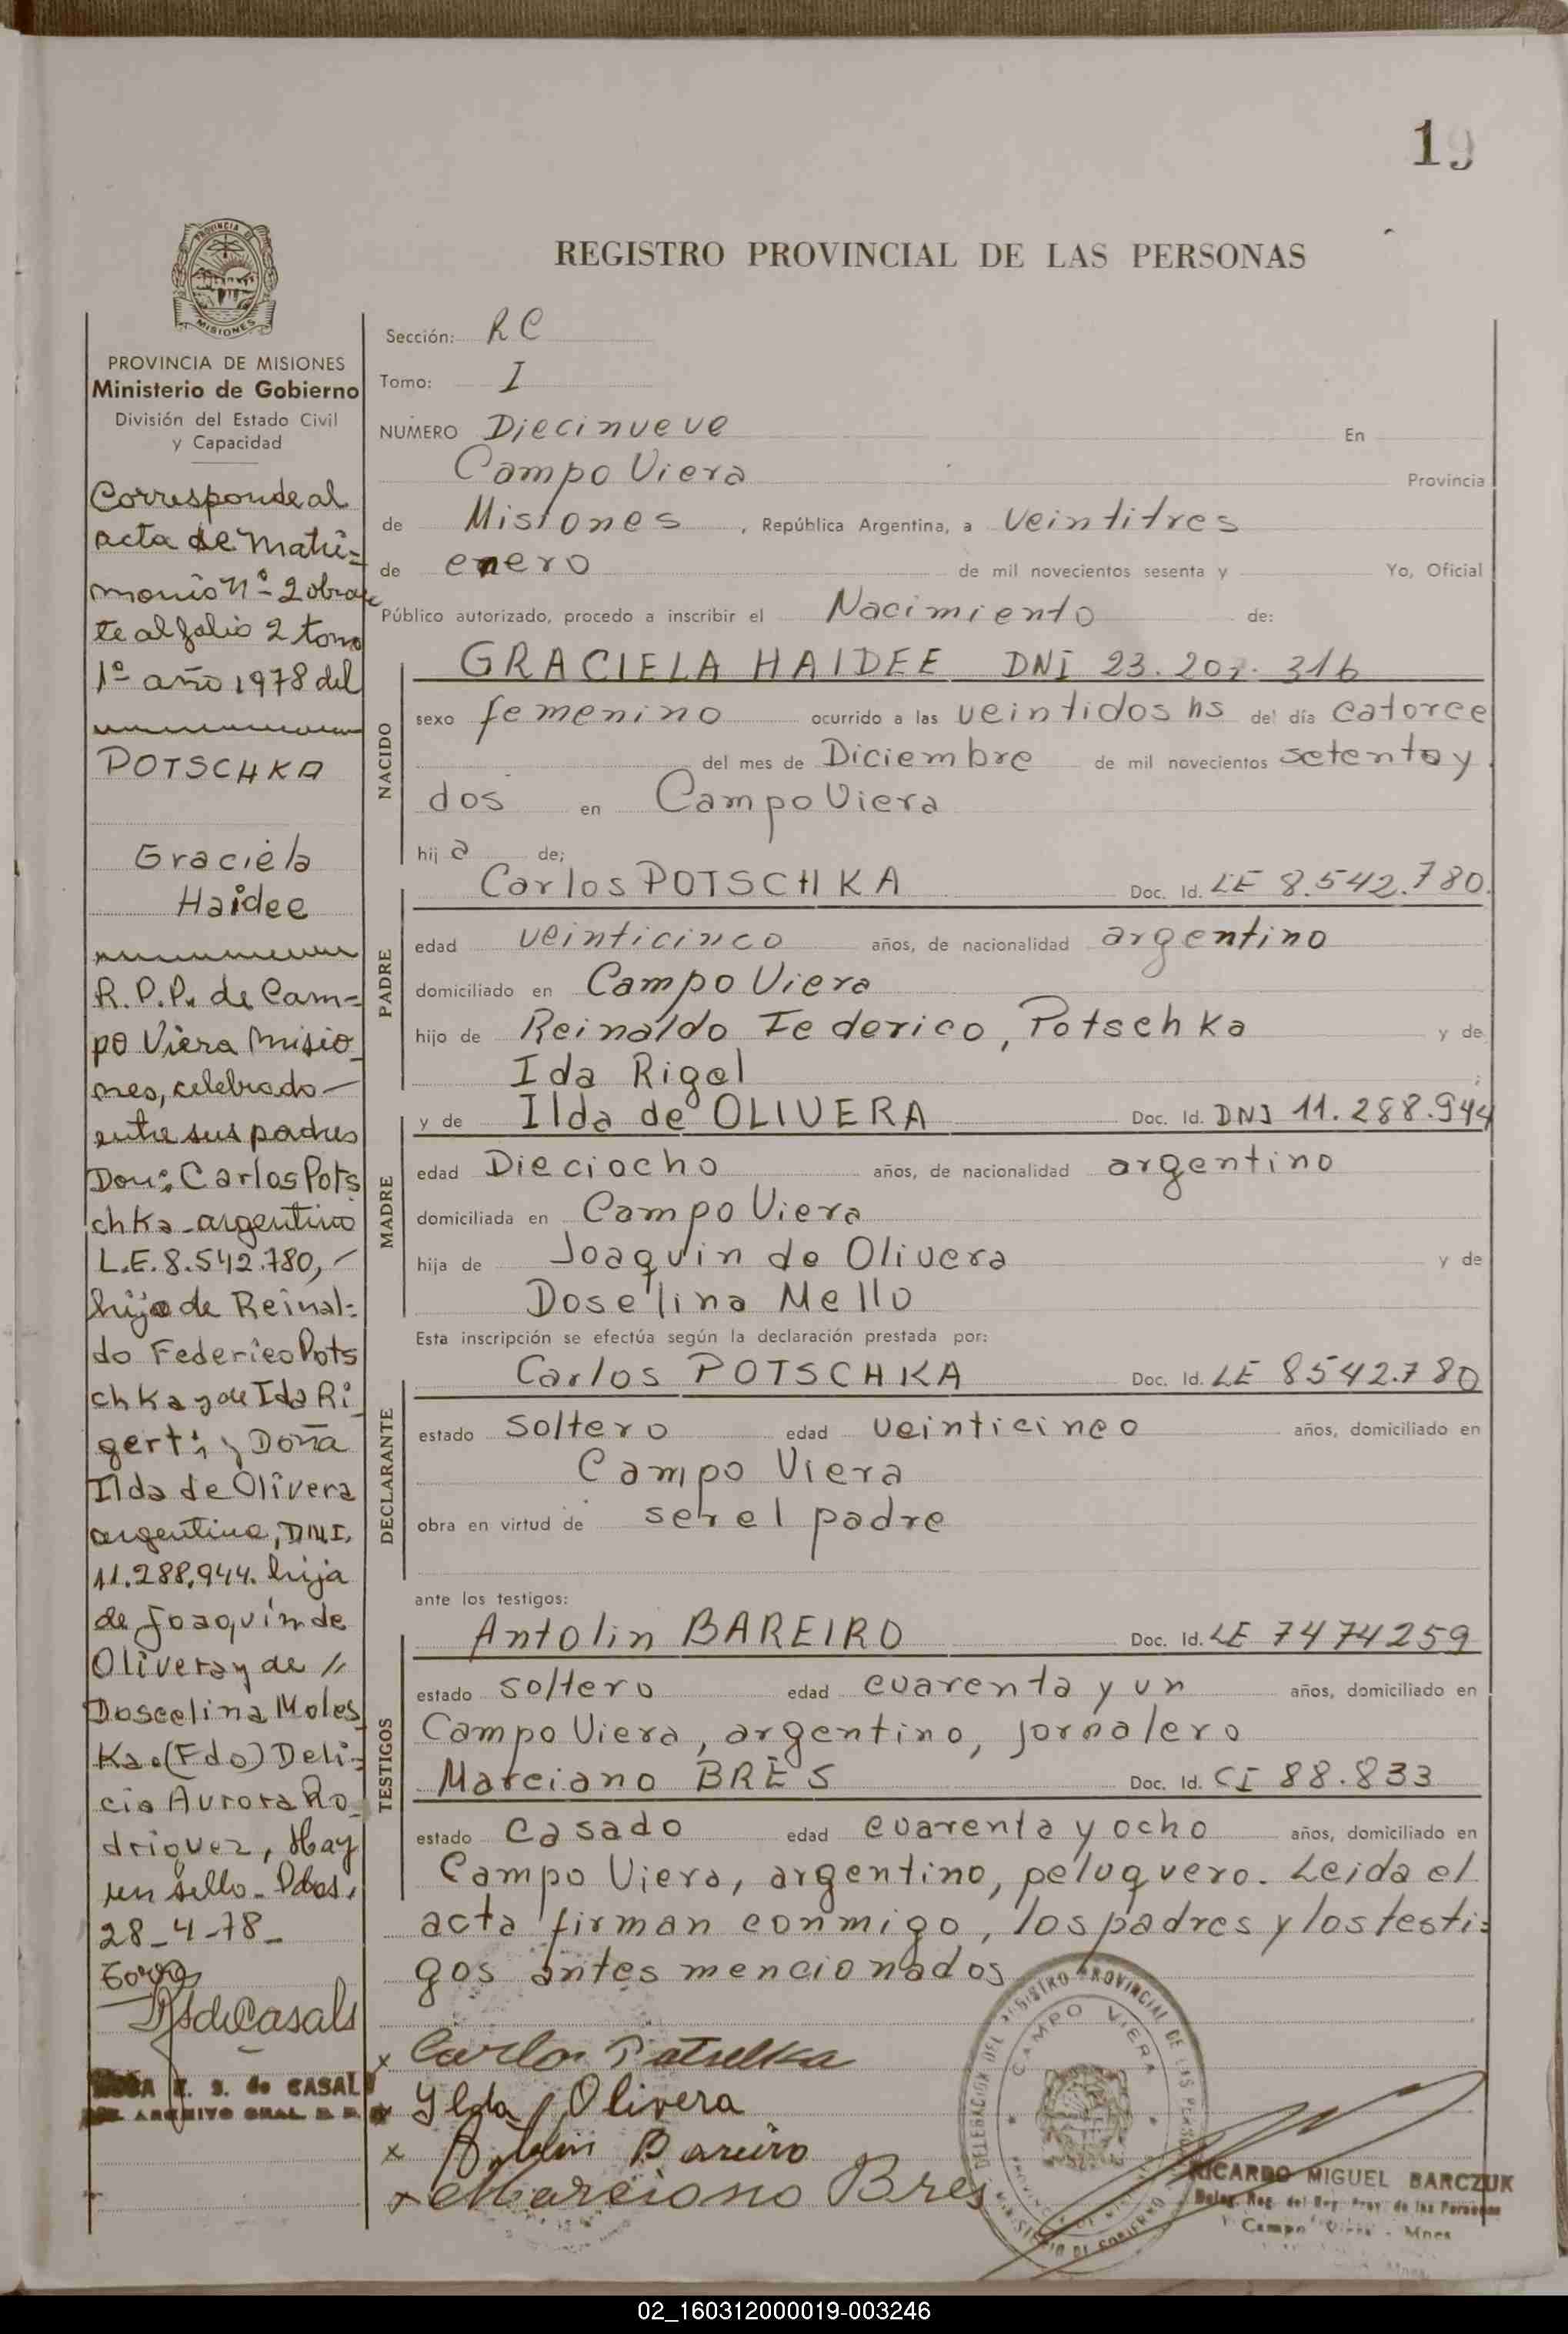 19
REGISTRO PROVINCIAL DE LAS PERSONAS
PROVINCIA DE MISIONES
PROVINCIA DE MISIONES
Ministerio de Gobierno
División del Estado Civil
y Capacidad
Corresponde al
acta de Matri=
monio Nº 2 obran
te al folio 2 tomo
1º año 1978 del
POTSCHKA
Graciela
Haidee
R.P.P. de Cam=
po Viera Misio
nes, celebrado—
entre sus padres
Don: Carlos Pots
chka argentino
L.E. 8.542.780,—
hijo de Reinal=
do Federico Pots
chka y de Ida Ri
gert; y Doña
Ilda de Olivera
argentina, D.N.I.
11.288.944. hija
de Joaquin de
Olivera y de //
Doscelina Moles
Ka.(Fdo) Deli=
cia Aurora Ro
driguez, Hay
un sello. Pdas,
28-4-78-
RSdeCasals
S. de CASAL
ARCHIVO GRAL
Sección: RC
Tomo: I
NUMERO Diecinueve En
Campo Viera Provincia
de Misiones, República Argentina, a veintitres
de enero de mil novecientos sesenta y Yo, Oficial
Público autorizado, procedo a inscribir el Nacimiento de:
NACIDO
GRACIELA HAIDEE DNI 23.207.316
sexo femenino ocurrido a las veintidos hs del día catorce
del mes de Diciembre de mil novecientos setenta y
dos en Campo Viera
hij a de;
PADRE
Carlos POTSCHKA Doc. Id. LE 8.542.780.
edad veinticinco años, de nacionalidad argentino
domiciliado en Campo Viera
hijo de Reinaldo Federico, Potschka y de
Ida Rigel
MADRE
y de Ilda de OLIVERA Doc. Id. DNI 11.288.944
edad Dieciocho años, de nacionalidad argentino
domiciliada en Campo Viera
hija de Joaquin de Olivera y de
Doselina Mello
Esta inscripción se efectúa según la declaración prestada por:
DECLARANTE
Carlos POTSCHKA Doc. Id. LE 8542.780
estado soltero edad veinticinco años, domiciliado en
Campo Viera
obra en virtud de ser el padre
ante los testigos:
TESTIGOS
Antolin BAREIRO Doc. Id. LE 7474259
estado soltero edad cuarenta y un años, domiciliado en
Campo Viera, argentino, jornalero
Marciano BRES Doc. Id. CI 88.833
estado casado edad cuarenta y ocho años, domiciliado en
Campo Viera, argentino, peluquero. Leida el
acta firman conmigo, los padres y los testi=
gos antes mencionados
x Carlos Potschka
x Ylda Olivera
x Antolin Bareiro
x Marciano Bres
DELEGACION DEL REGISTRO PROVINCIAL DE LAS PERSONAS
CAMPO VIERA
MINISTERIO DE GOBIERNO
RICARDO MIGUEL BARCZUK
Deleg. Reg. del Reg. Prov. de las Personas
Campo Viera - Mnes
02_160312000019-003246